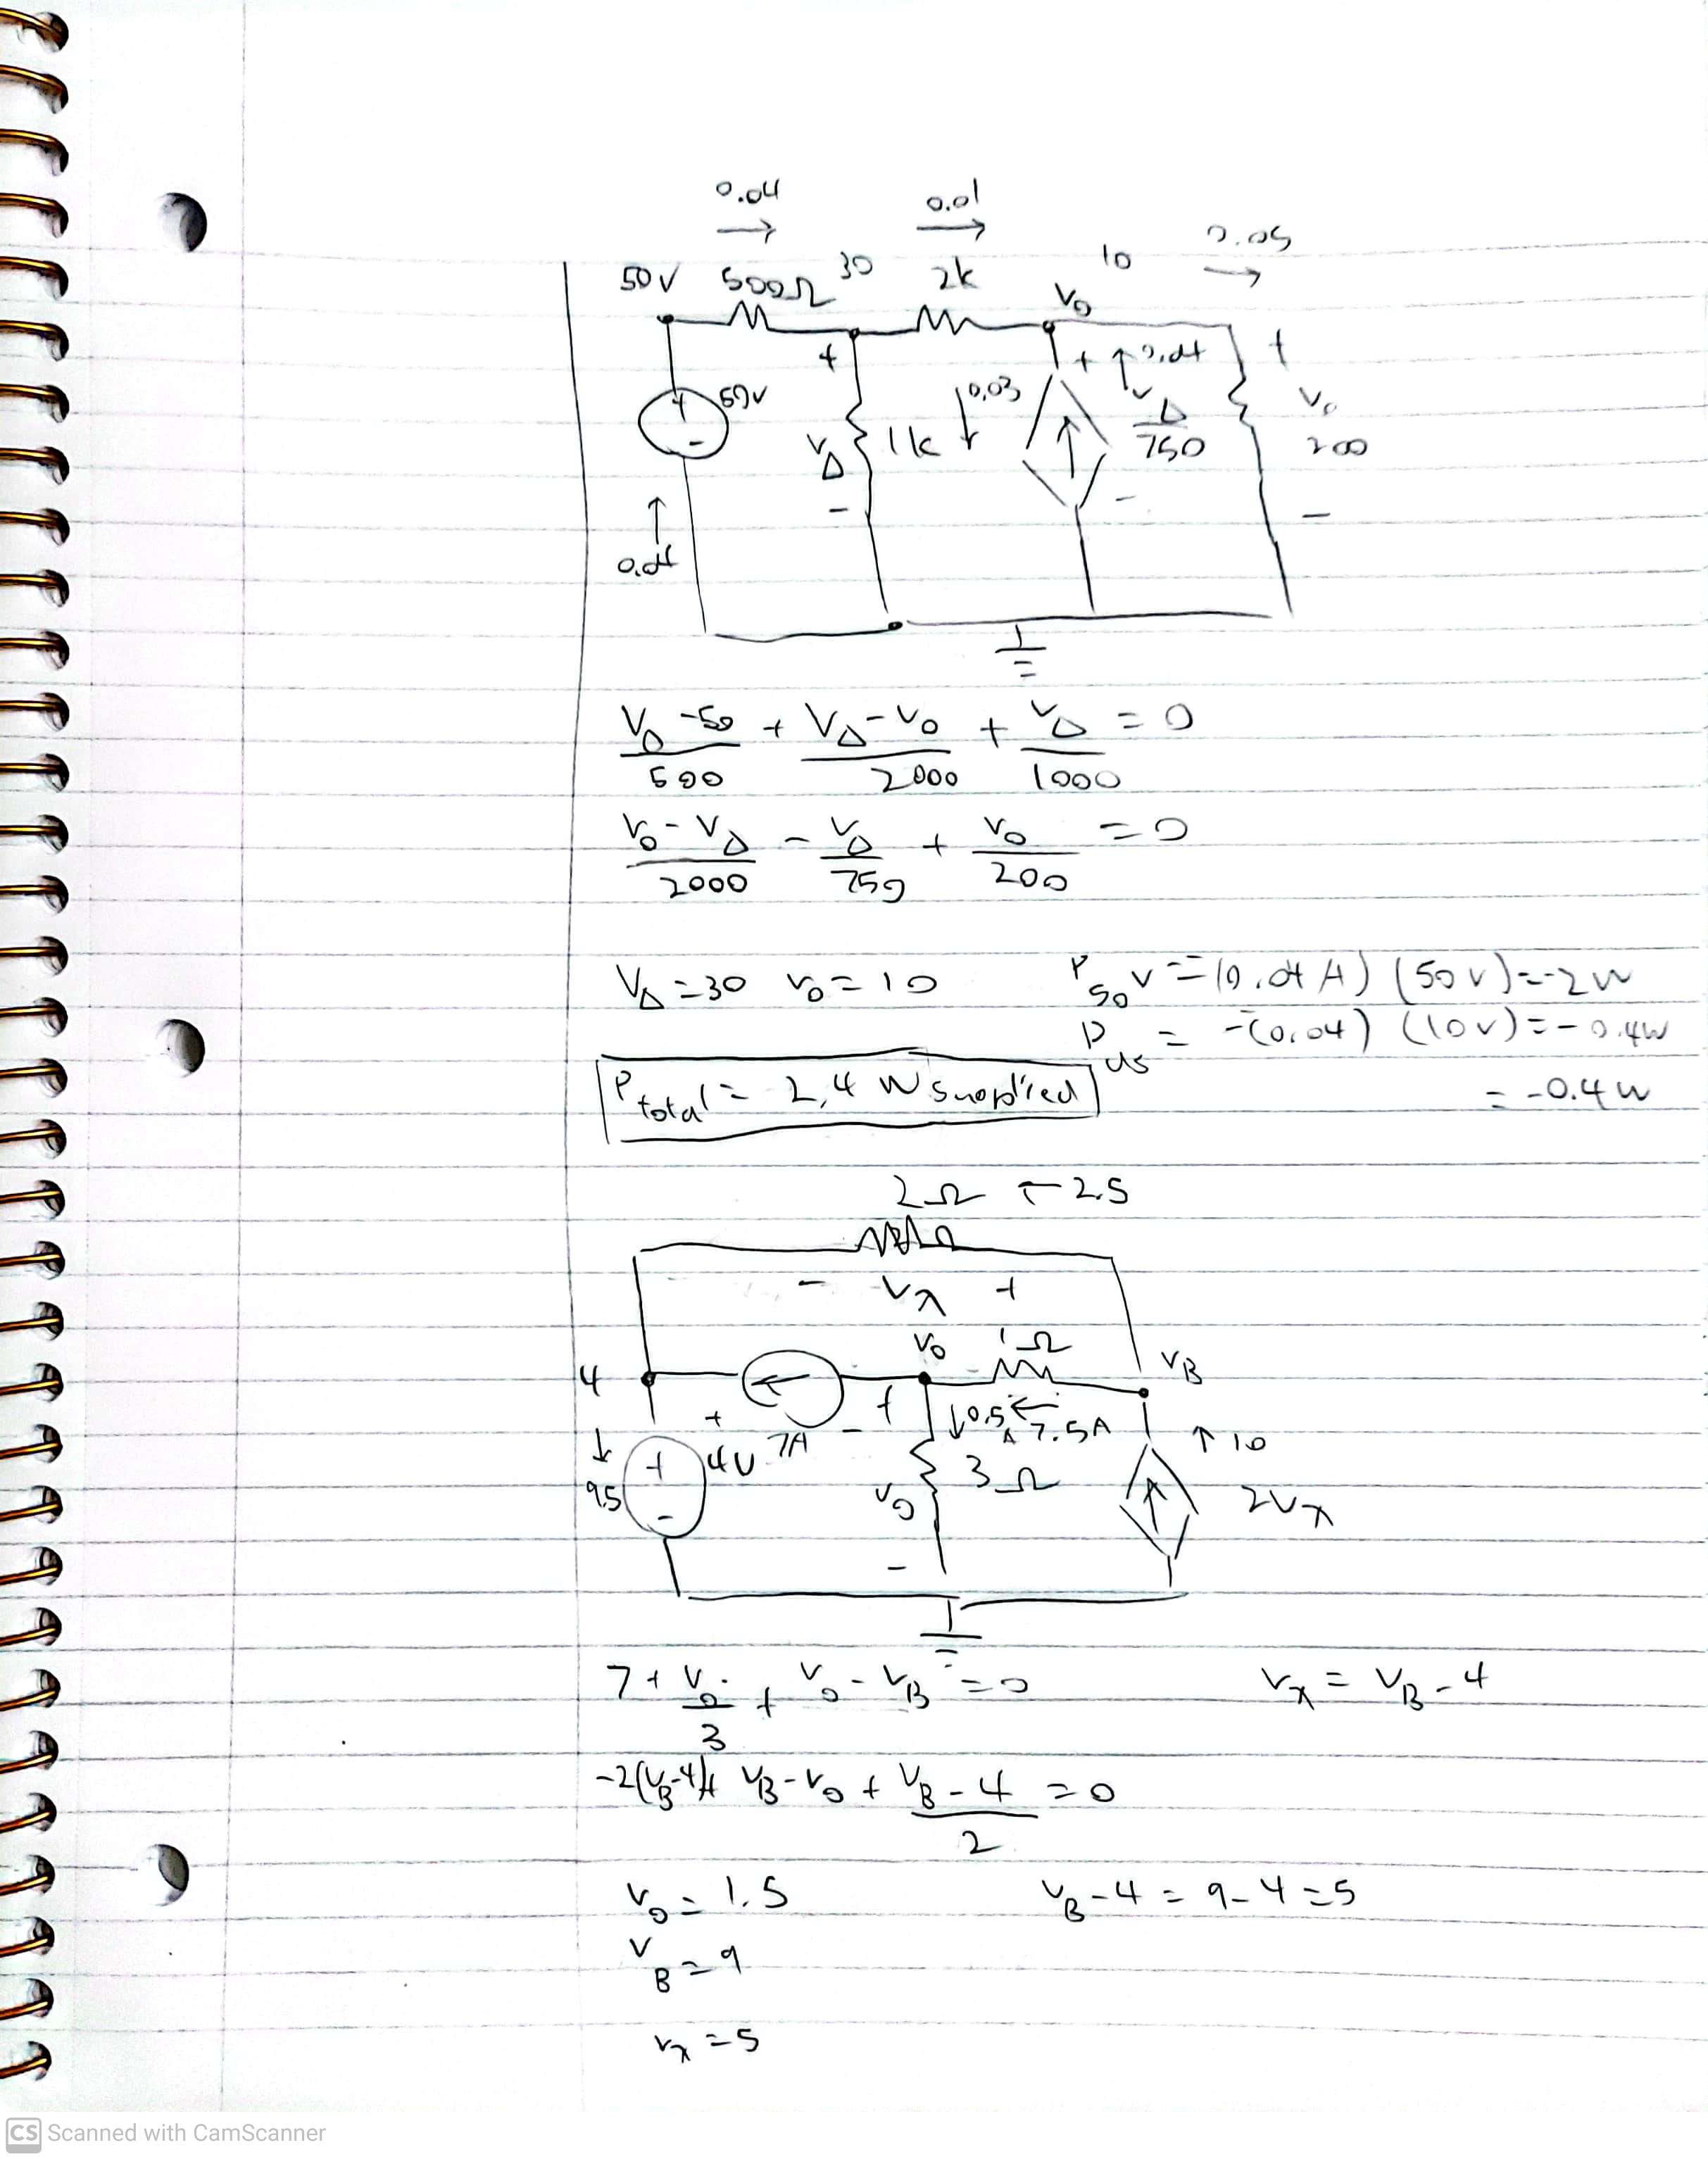 0.04 0.01 0.05
→ → →
50V 500Ω 30 2k V₀ 10
+ + ↑ 0.04 +
50V ↓ 0.03
+ - VΔ 1k VΔ/750 V₀ 200
- - -
↑ 0.04
(VΔ - 50)/500 + (VΔ - V₀)/2000 + VΔ/1000 = 0
(V₀ - VΔ)/2000 - VΔ/750 + V₀/200 = 0
VΔ = 30 V₀ = 10
P50V = -(0.04 A) (50V) = -2W
P = -(0.04) (10V) = -0.4W
Ptotal = 2.4 W supplied
= -0.4W
2Ω ← 2.5
- Vx +
V₀ 1Ω VB
4 ← + 7A - + ↓ 0.5A ← 7.5A ↑ 10
↓ 9.5 + - 4V V₀ 3Ω 2Vx
-
7 + V₀/3 + V₀ - VB = 0 Vx = VB - 4
-2(VB-4) + VB - V₀ + (VB - 4)/2 = 0
V₀ = 1.5 VB - 4 = 9 - 4 = 5
VB = 9
Vx = 5
CS Scanned with CamScanner